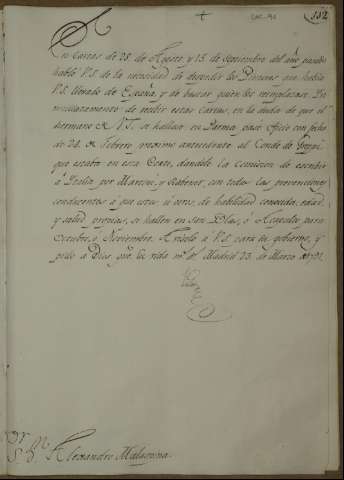 132
En cartas de 28 de Agosto, y 15 de Septiembre del año pasado
habló V.S. de la necesidad de despedir los Pintores que havia
V.S. llevado de España, y de buscar quien los reemplazase. In
mediatamente de recibir estas cartas, en la duda de que el
hermano de V.S. se hallase en Parma, pasé oficio con fecha
de 24 de Febrero proximo antecedente al Conde
que estaba en esta Corte, dandole la comision de escribir
á Italia por y con todas las prevenciones
conducentes á que estos ú otros, de habilidad conocida, edad,
y salud propias, se hallen en San Blas, ó Acapulco para
Octubre, ó Noviembre. Avisolo á V.S. para su gobierno, y
pido á Dios gue. su vida ms. as. Madrid 23 de Marzo 1791.
Sr. Dn. Alexandro Malaspina.